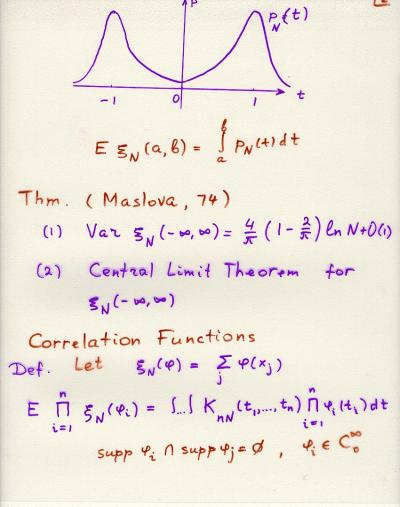 P
P_N(t)
-1 0 1 t
E ξ_N(a,b) = ∫_a^b P_N(t) dt
Thm. (Maslova, 74)
(1) Var ξ_N(-∞,∞) = 4/π (1 - 2/π) ln N + O(1)
(2) Central Limit Theorem for
ξ_N(-∞,∞)
Correlation Functions
Def. Let ξ_N(φ) = Σ_j φ(x_j)
E ∏_{i=1}^n ξ_N(φ_i) = ∫...∫ K_{nN}(t_1,...,t_n) ∏_{i=1}^n φ_i(t_i) dt
supp φ_i ∩ supp φ_j = ∅ , φ_i ∈ C_0^∞